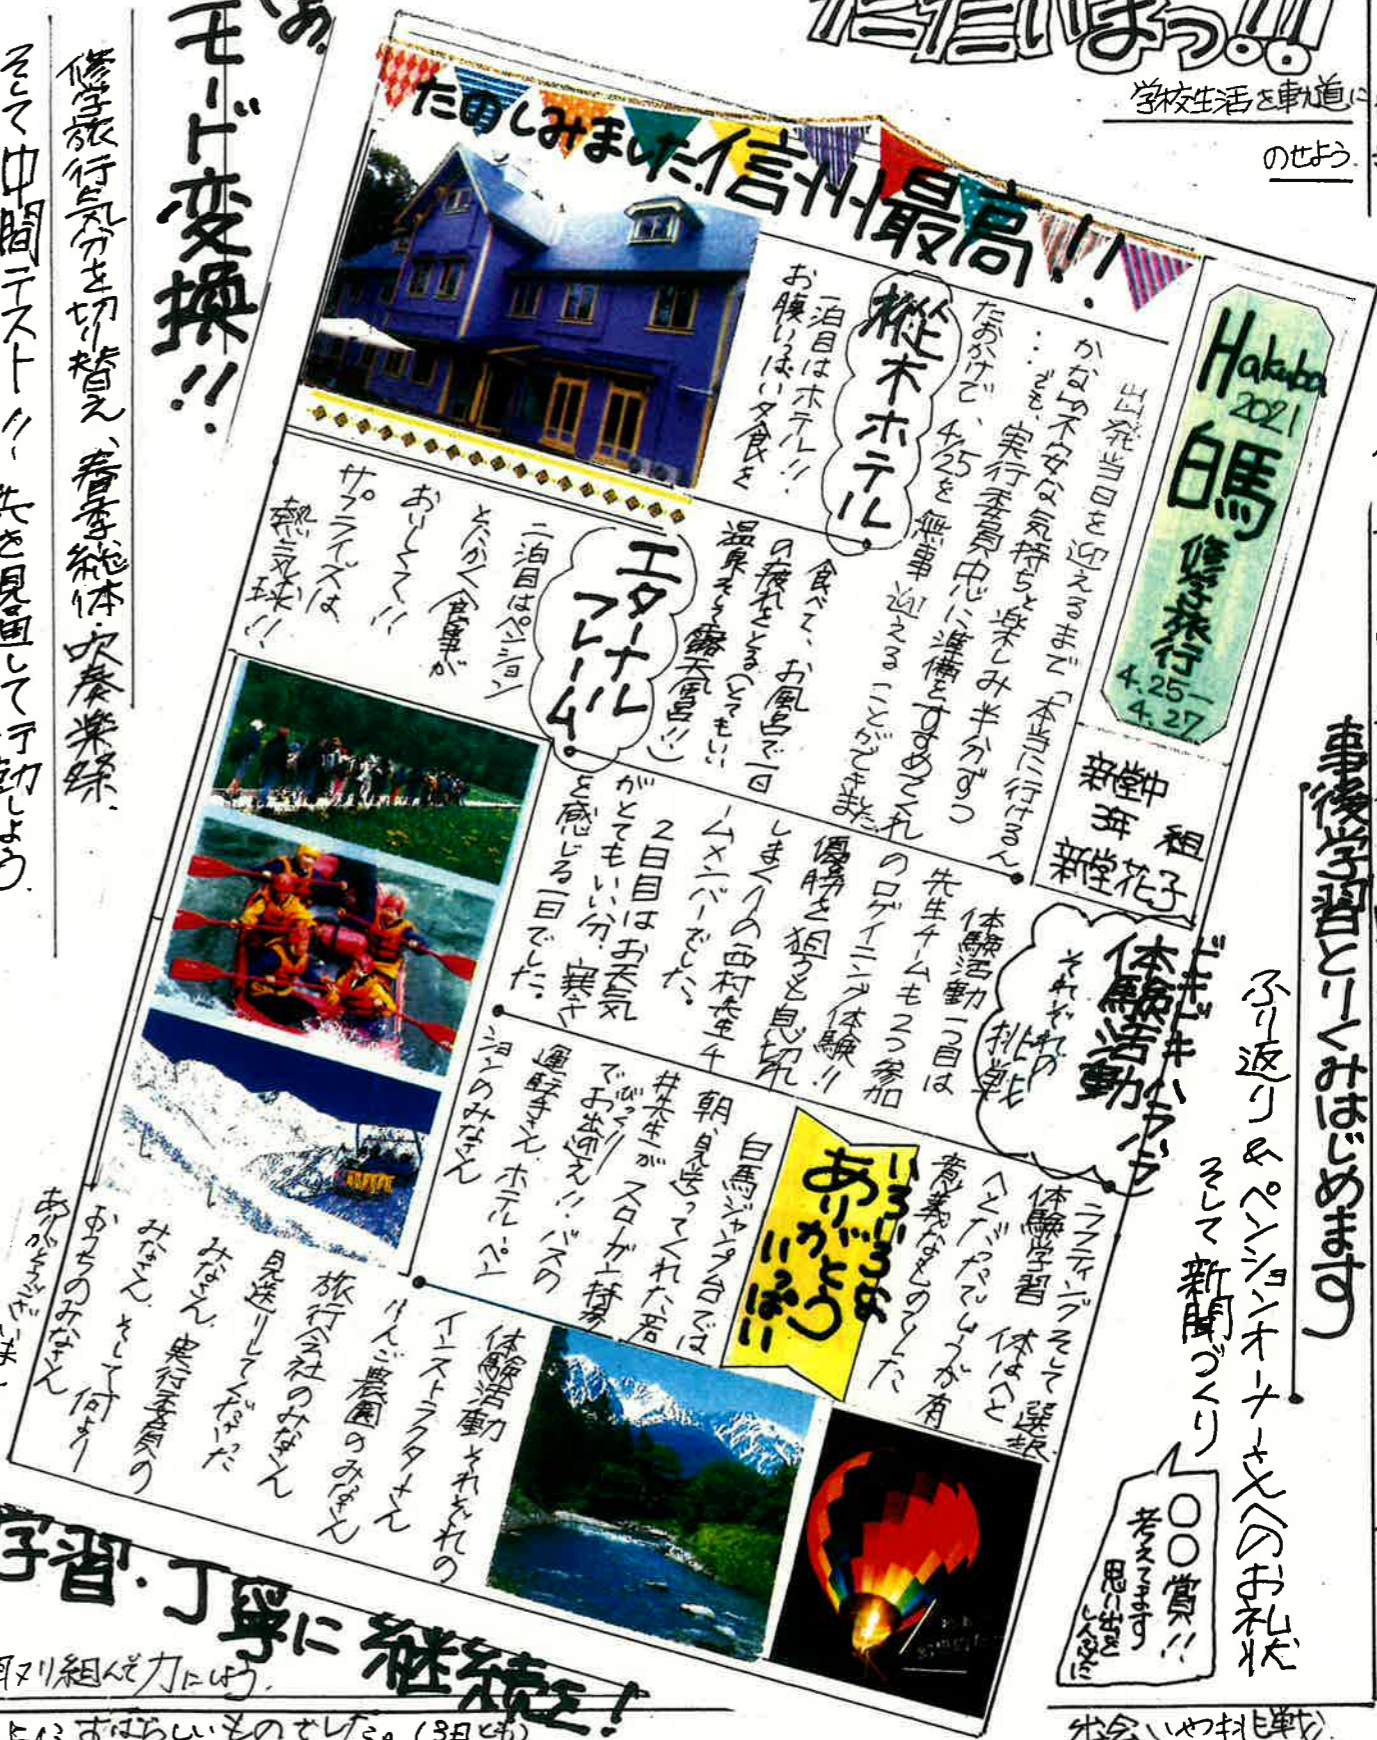 ただいまっ!!
学校生活を軌道に
のせよう
事後学習とりくみはじめます
ふり返り&ペンションオーナーさんへのお礼状
そして新聞づくり
○○賞!!
考えてます
思い出を
モード変換!!
修学旅行と気分を切り替え、春季総体・吹奏楽祭、
そして中間テスト!!先を見通して行動しよう。
たのしみました信州最高!!
Hakuba
2021
白馬
修学旅行
4.25-
4.27
新堂中
3年 組
新堂花子
出発当日を迎えるまで「本当に行けるん
かな」の不安な気持ちと楽しみ半分ずつ
・・・でも、実行委員中心に準備をすすめてくれ
たおかげで、4/25を無事迎えることができました
樅木ホテル。
一泊目はホテル!!
お腹いっぱい夕食を
食べて、お風呂で一日
の疲れをとる(とてもいい
温泉そして露天風呂!!)
エターナル
フレーム。
二泊目はペンション
とにかく食事が
おいしくて!!
サプライズは
熱気球!!
ドキドキハラハラ
体験活動!!
それぞれの
挑戦
体験活動一つ目は
先生チームも2つ参加
のロゲイニング体験!!
優勝を狙うと息切れ
しまくりの西村先生チ
ームメンバーでした。
2日目はお天気
がとてもいい分、寒さ
を感じる一日でした。
ラフティングそして選択
体験学習 体はへと
へとだったでしょうが有
意義なものでした
いろいろな
ありがとう
いっぱい
白馬ジャンプ台では
朝、見送ってくれた若
井先生がスローガン持参
でお出迎え!!バスの
びっくり
運転手さん、ホテル、ペン
ションのみなさん
体験活動それぞれの
インストラクターさん
りんご農園のみなさん
旅行会社のみなさん
見送りしてくださった
みなさん、実行委員の
みなさん、そして何より
おうちのみなさん
ありがとうございま
学習・丁寧に継続を!
取り組んで力にしよう。
すばらしいものでした。(3日とも)
出会いや挑戦が